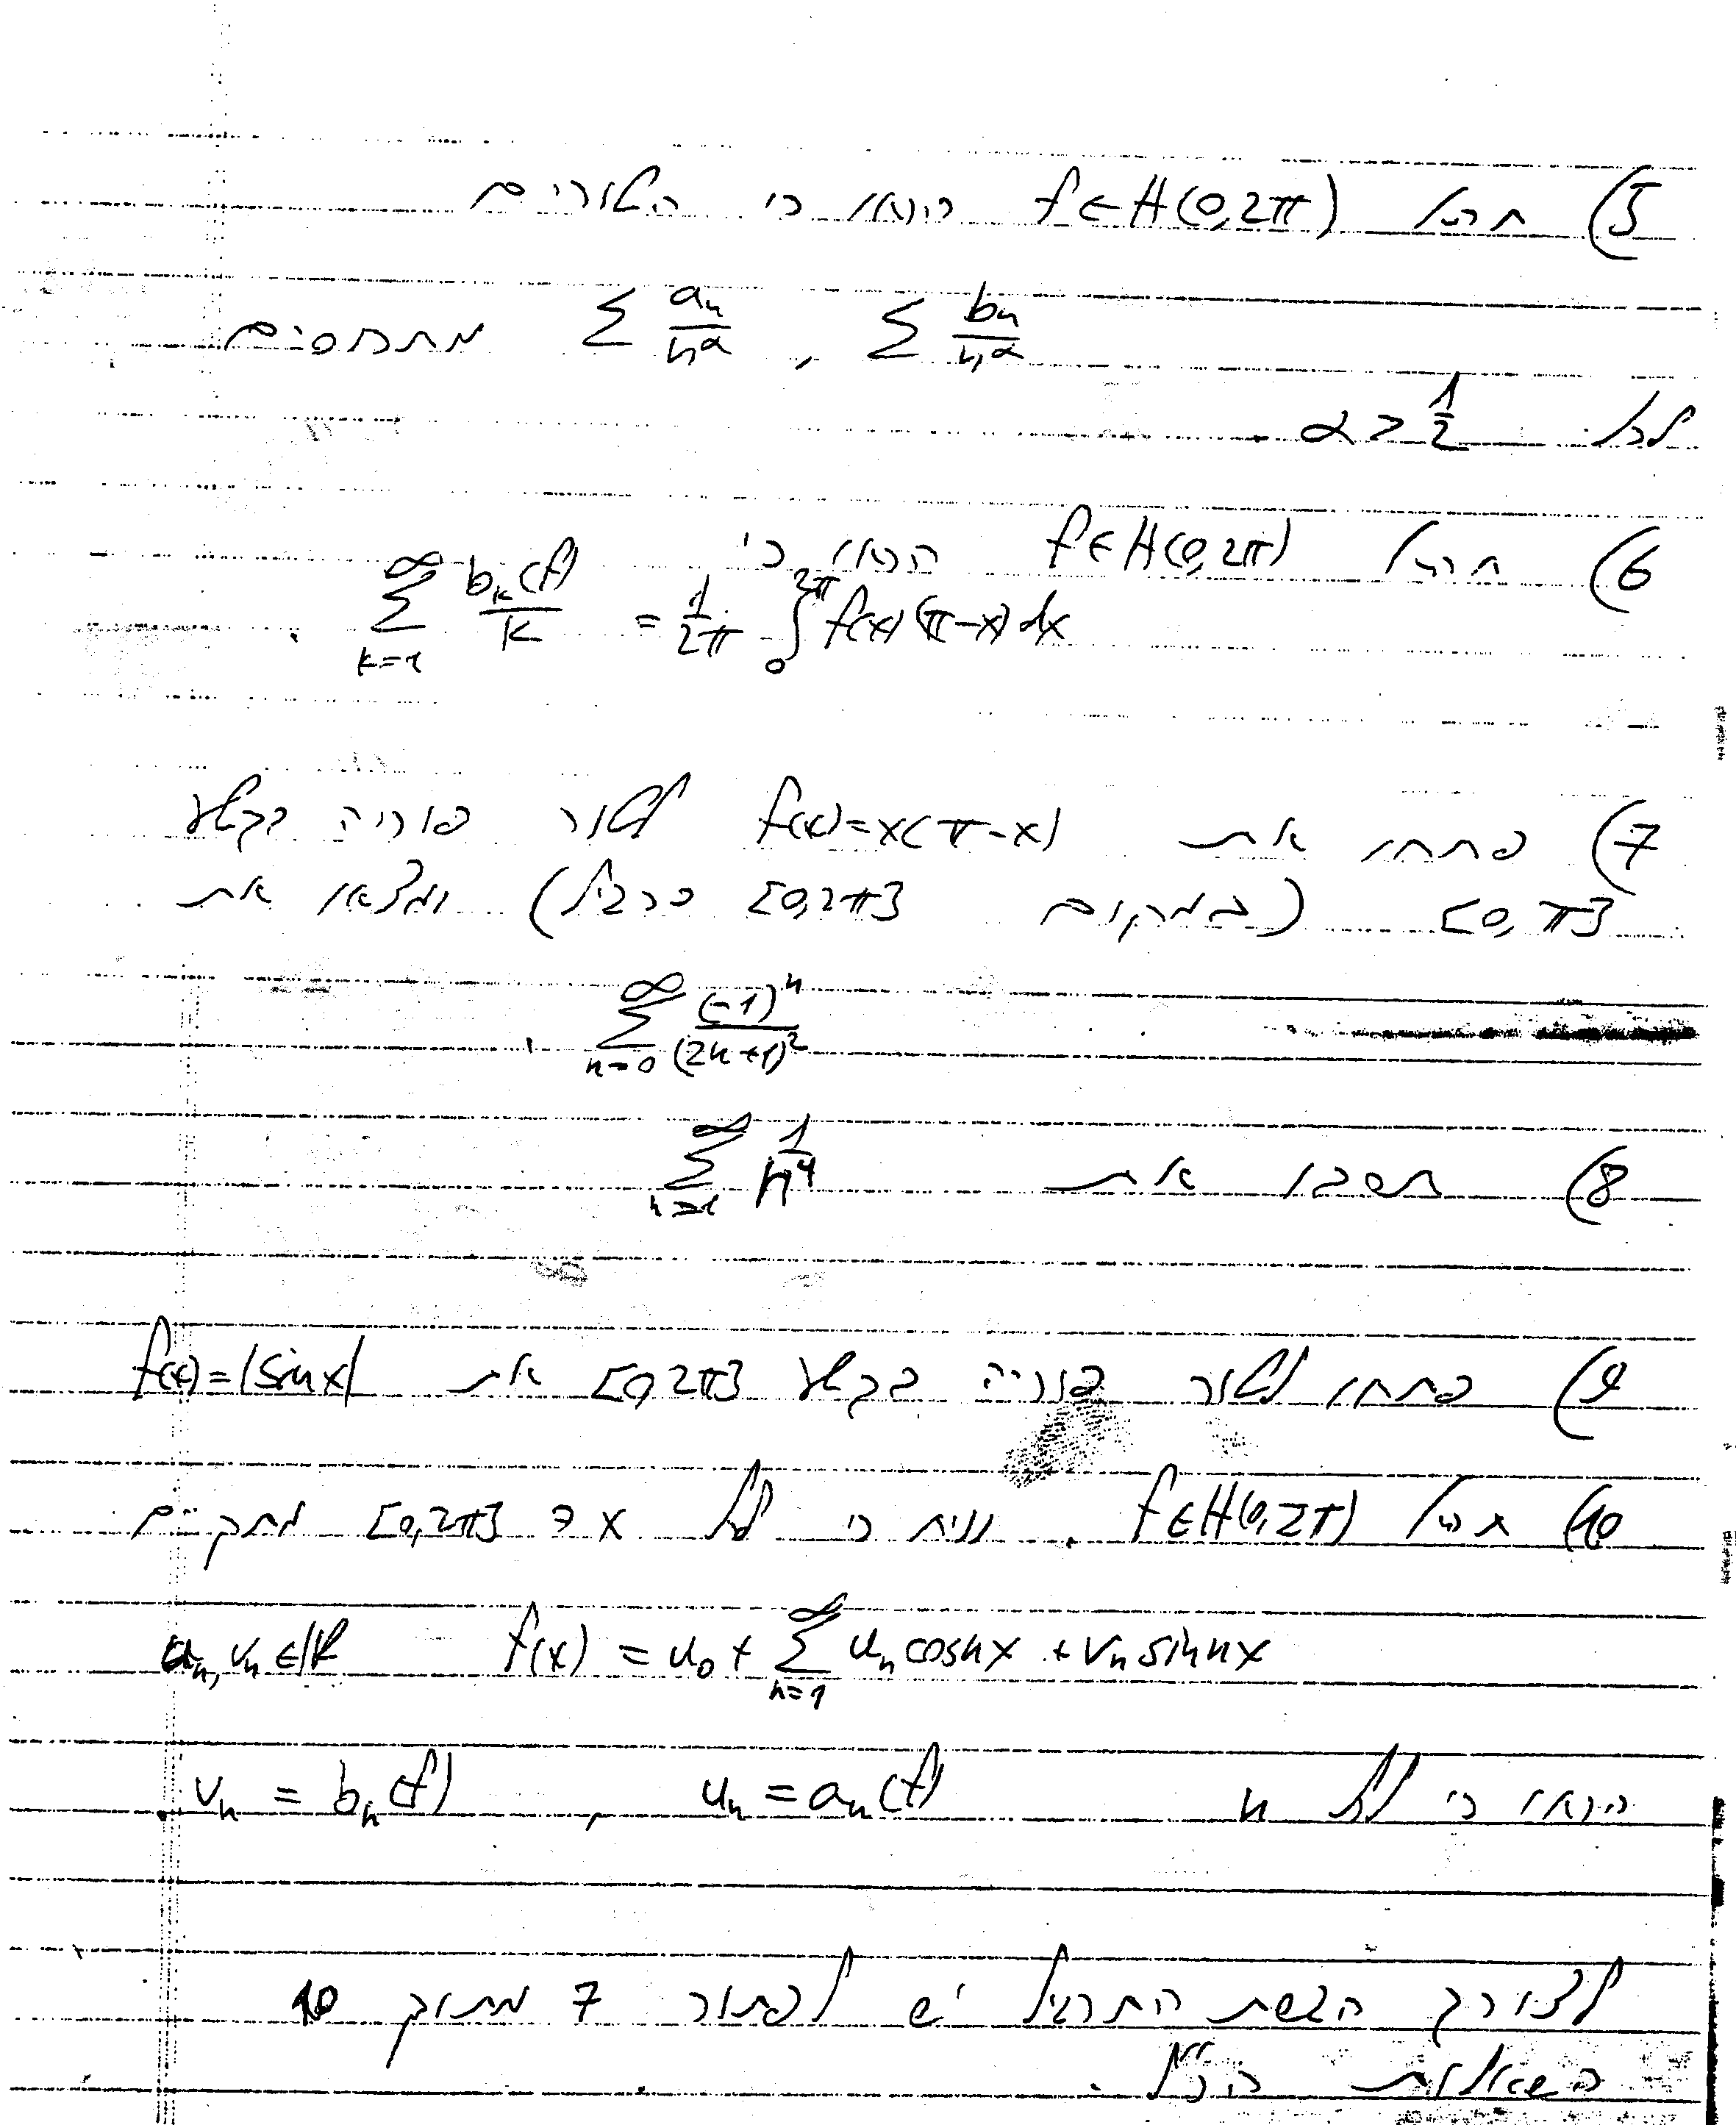 5) תהא f∈H(0,2π) הראו כי הטורים
∑ a_n/n^α , ∑ b_n/n^α מתכנסים
לכל α>1/2 .
6) תהא f∈H(0,2π) הראו כי
∑_{k=1}^∞ b_k(f)/k = 1/2π ∫_0^{2π} f(x)(π-x)dx .
7) פתחו את f(x)=x(π-x) לטור פוריה בקטע
[0,π] (במקום [0,2π] כרגיל) ומצאו את
∑_{n=0}^∞ (-1)^n/(2n+1)^2 .
8) חשבו את ∑_{n=1}^∞ 1/n^4
9) פתחו לטור פוריה בקטע [0,2π] את f(x)=|sinx|
10) תהא f∈H(0,2π) . נניח כי לכל x ב [0,2π] מתקיים
f(x) = u_0 + ∑_{n=1}^∞ u_n cosnx + v_n sinnx u_n, v_n∈ℝ
הראו כי לכל n u_n = a_n(f) , v_n = b_n(f) .
לצורך הגשת התרגיל יש לפתור 7 מתוך 10
השאלות הנ"ל .